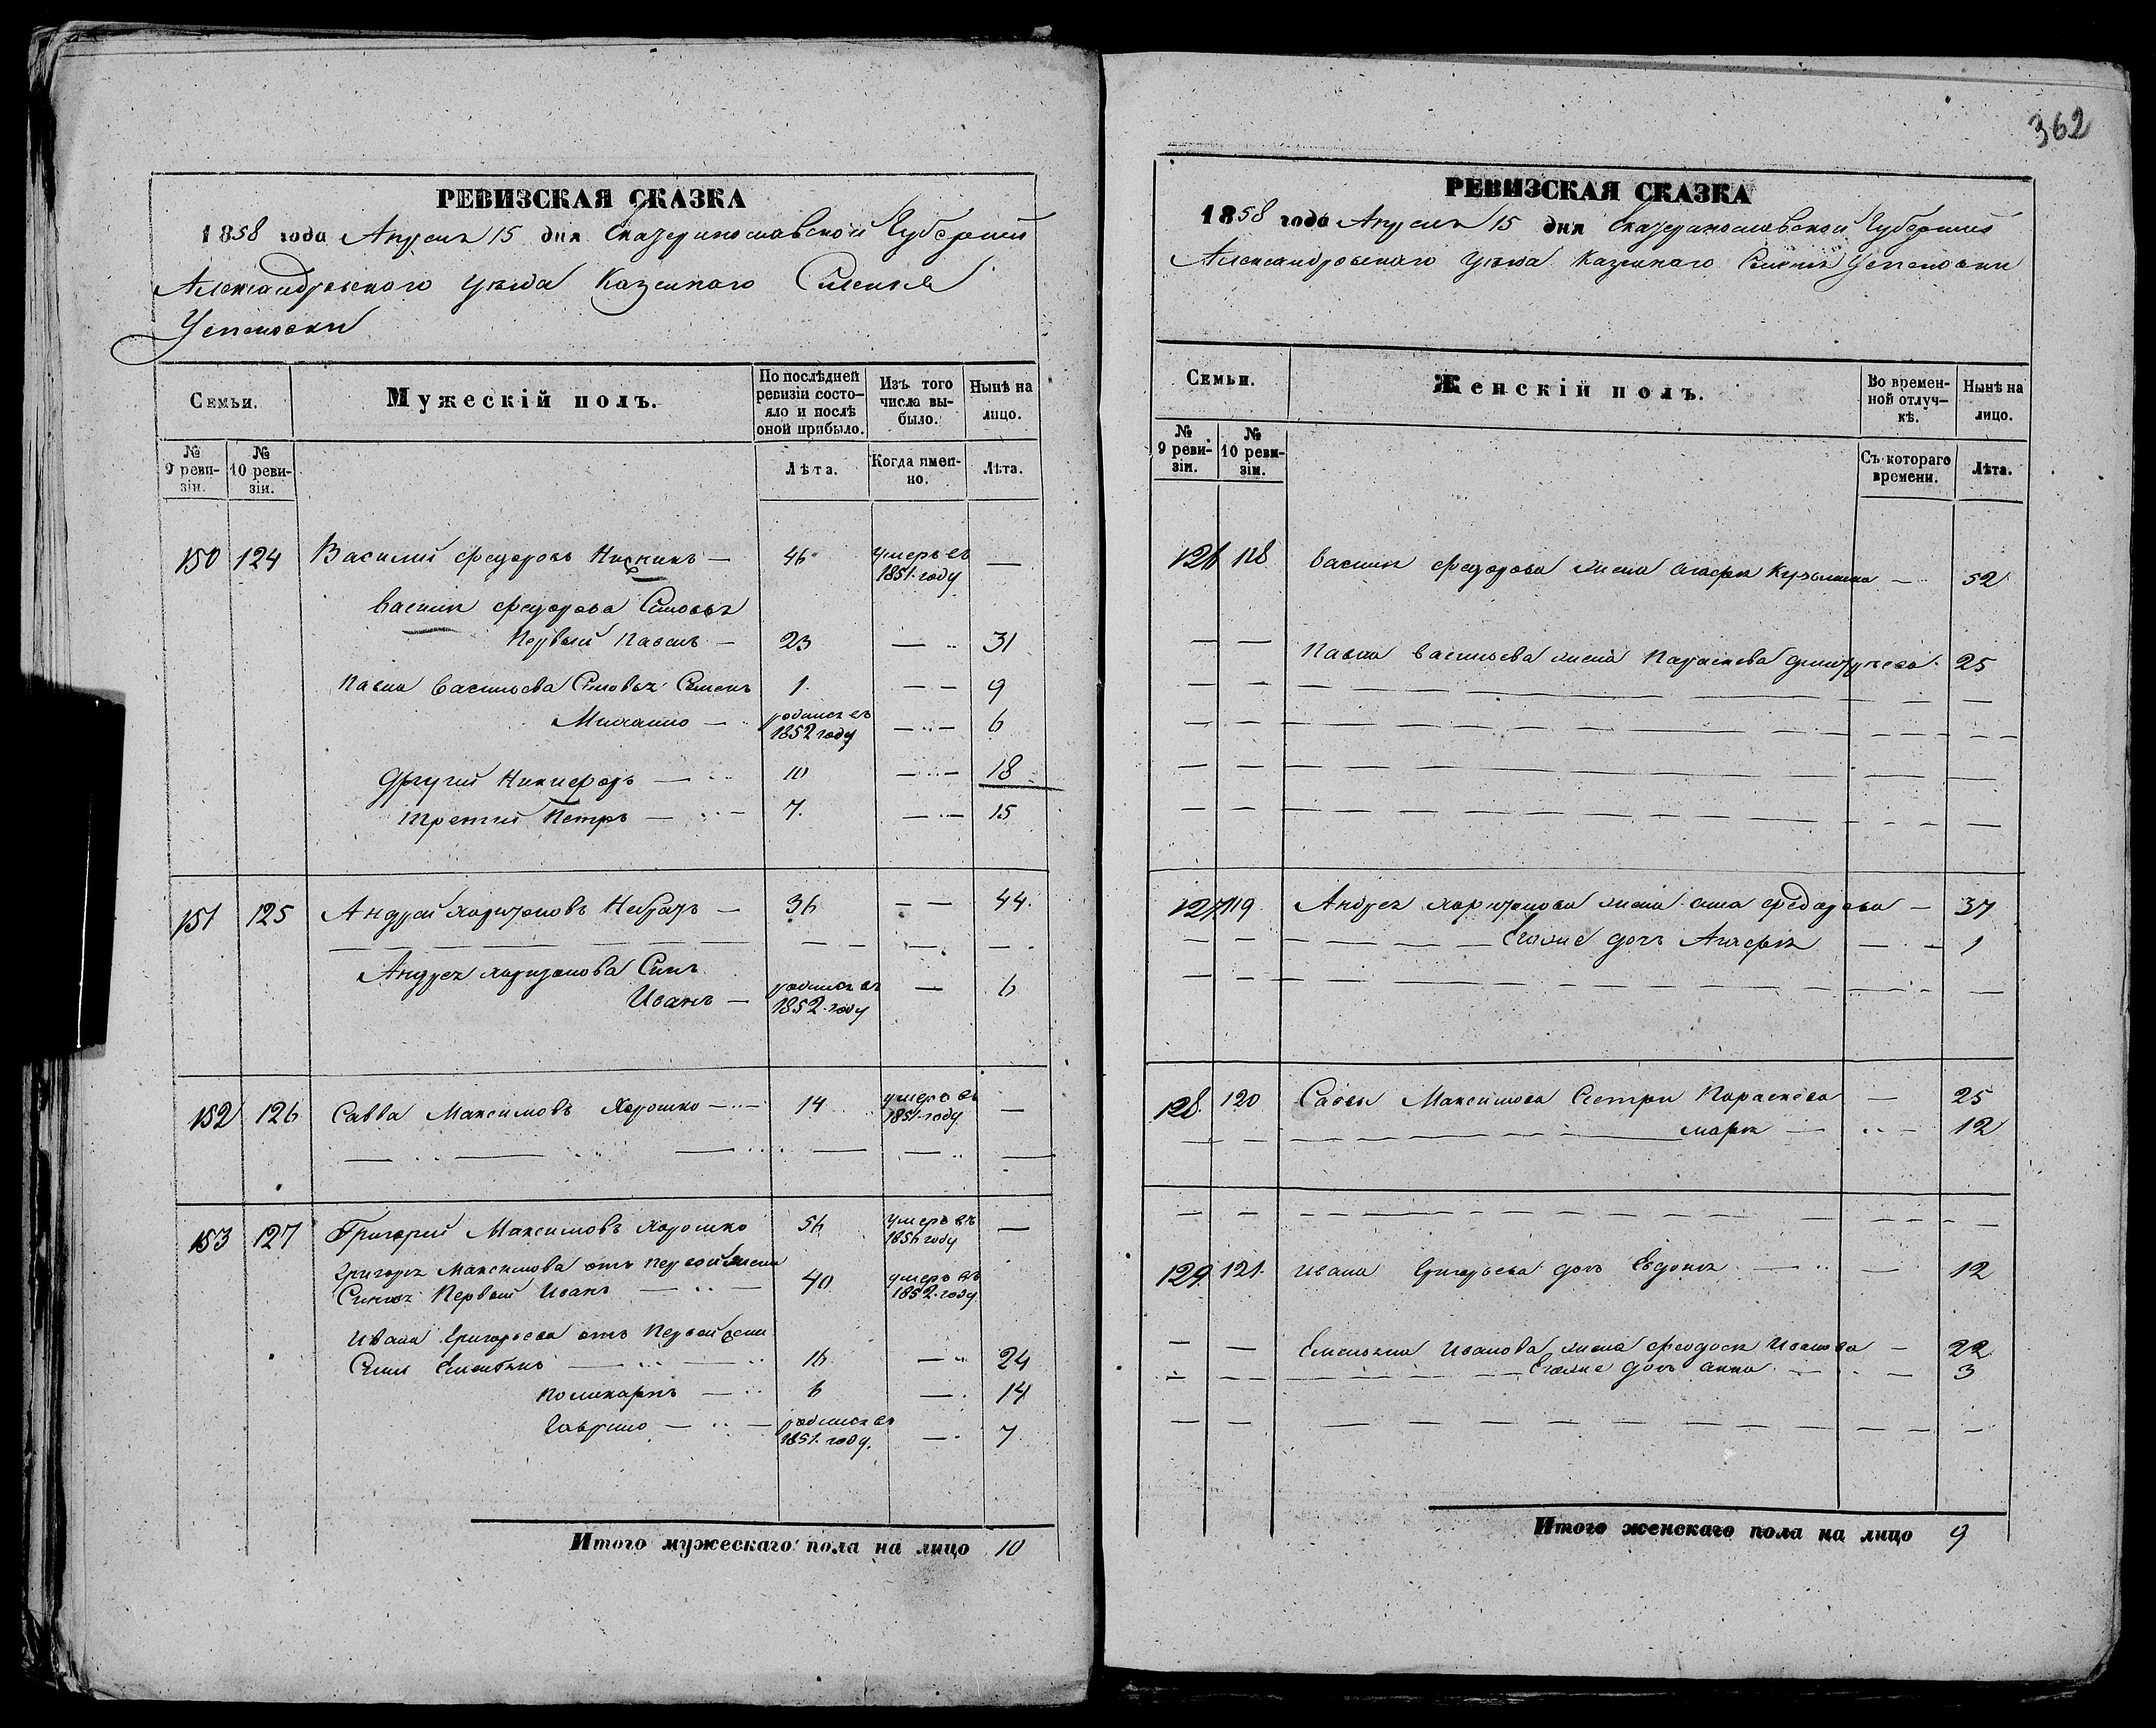 362
РЕВИЗСКАЯ СКАЗКА
1858 года Апреля 15 дня Екатеринославской Губернии
Александровского уезда Казенного Селения
Успеновки
Семьи.
Мужескій полъ.
По послѣдней ревизіи состояло и послѣ оной прибыло.
Изъ того числа выбыло.
Нынѣ на лицо.
№ 9 ревизіи.
№ 10 ревизіи.
Лѣта.
Когда именно.
Лѣта.
150 124 Василий Федоровъ 46 умеръ въ 1851 году —
Василия Федорова Сыновья
Первый Павелъ — 23 — 31
Павла Васильева Сыновья Семенъ 1 — — 9
Михаило — родился въ 1852 году — 6
Другий Никифоръ — 10 — 18
Третий Петръ — 7. — 15
151 125 Андрей Харитоновъ — 36 — — 44.
Андрея Харитонова Сынъ
Иванъ — родился въ 1852 году — 6
152 126 Савва Максимовъ Хорошко — 14 умеръ въ 1851 году —
153 127 Григорий Максимовъ Хорошко 56 умеръ въ 1856 году —
Григория Максимова отъ первой жены
Сыновья Первый Иванъ — 40 умеръ въ 1852 году
Ивана Григорьева отъ Первой жены
Сыны Емельянъ — 16 — 24
Поликарпъ — 6 — 14
Гаврило — родился въ 1851 году. — 7
Итого мужескаго пола на лицо 10
РЕВИЗСКАЯ СКАЗКА
1858 года Апреля 15 дня Екатеринославской Губернии
Александровского уезда Казенного Селения Успеновки
Семьи.
Женскій полъ.
Во временной отлучкѣ.
Нынѣ на лицо.
№ 9 ревизіи.
№ 10 ревизіи.
Съ котораго времени.
Лѣта.
126 118 Василия Федорова жена Агафия Кузьмина — 52
— — Павла Васильева жена Параскева 25
127 119 Андрея Харитонова жена Федорова — 37
Его же дочь Агафия — 1
128. 120 Савы Максимова Сестры Параскева — 25
Марья — 12
129. 121. Ивана Григорьева дочь Евдокия — 12
— — Емельяна Иванова жена Феодосия Иванова — 22
Его же дочь Анна — 3
Итого женскаго пола на лицо 9